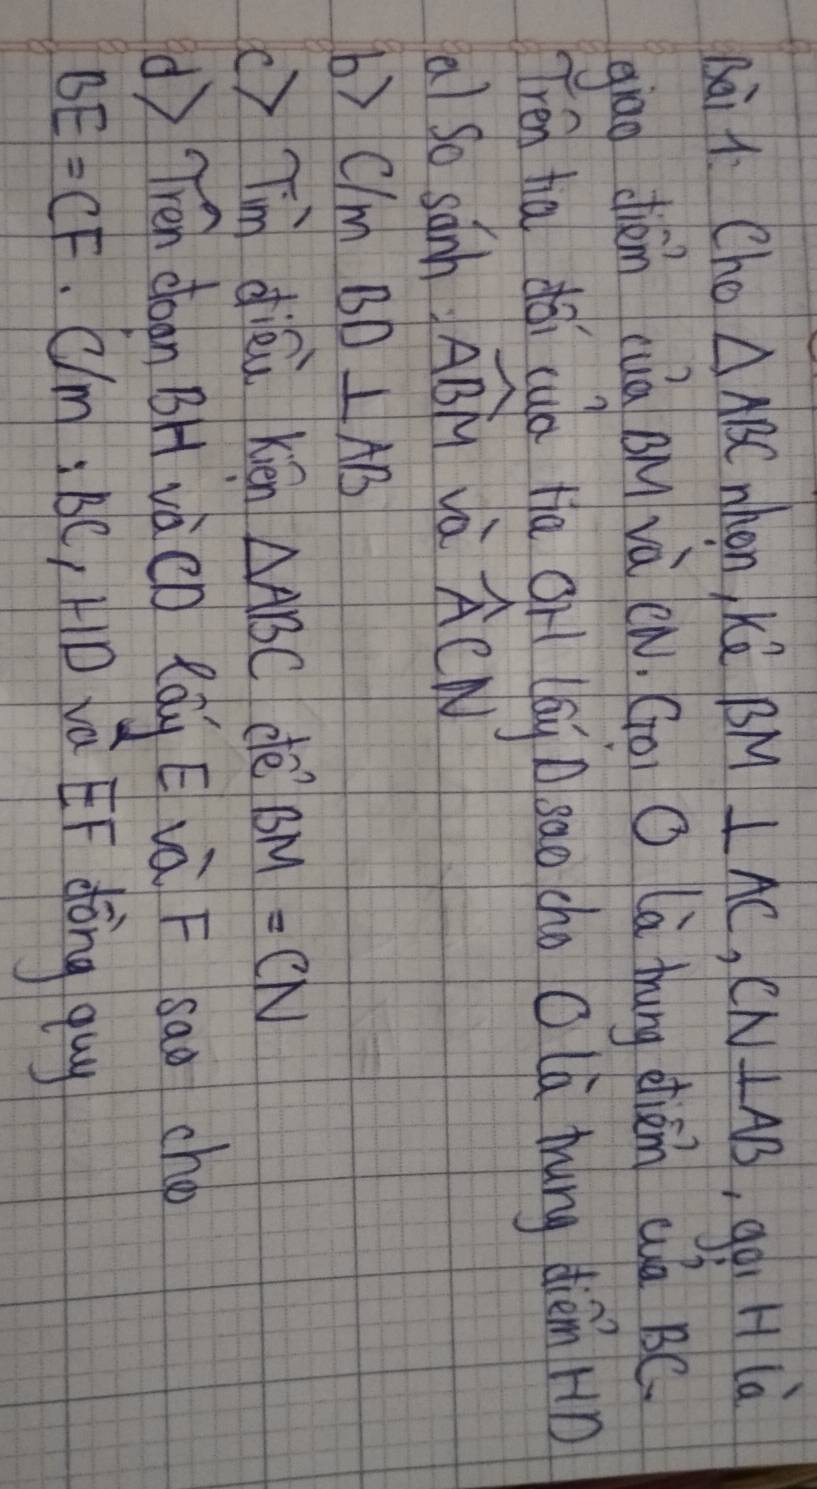 Bài 1: Cho △ABC nhọn, kẻ BM ⊥ AC, CN ⊥ AB, gọi H là
giao điểm của BM và CN. Gọi O là trung điểm của BC.
Trên tia đối của tia OH lấy D sao cho O là trung điểm HD
a) So sánh: \widehat{ABM} và \widehat{ACN}
b> C/m BD ⊥ AB
c> Tìm điều kiện △ABC để BM = CN
d> Trên đoạn BH và CD lấy E và F sao cho
BE = CF. C/m: BC, HD và EF đồng quy